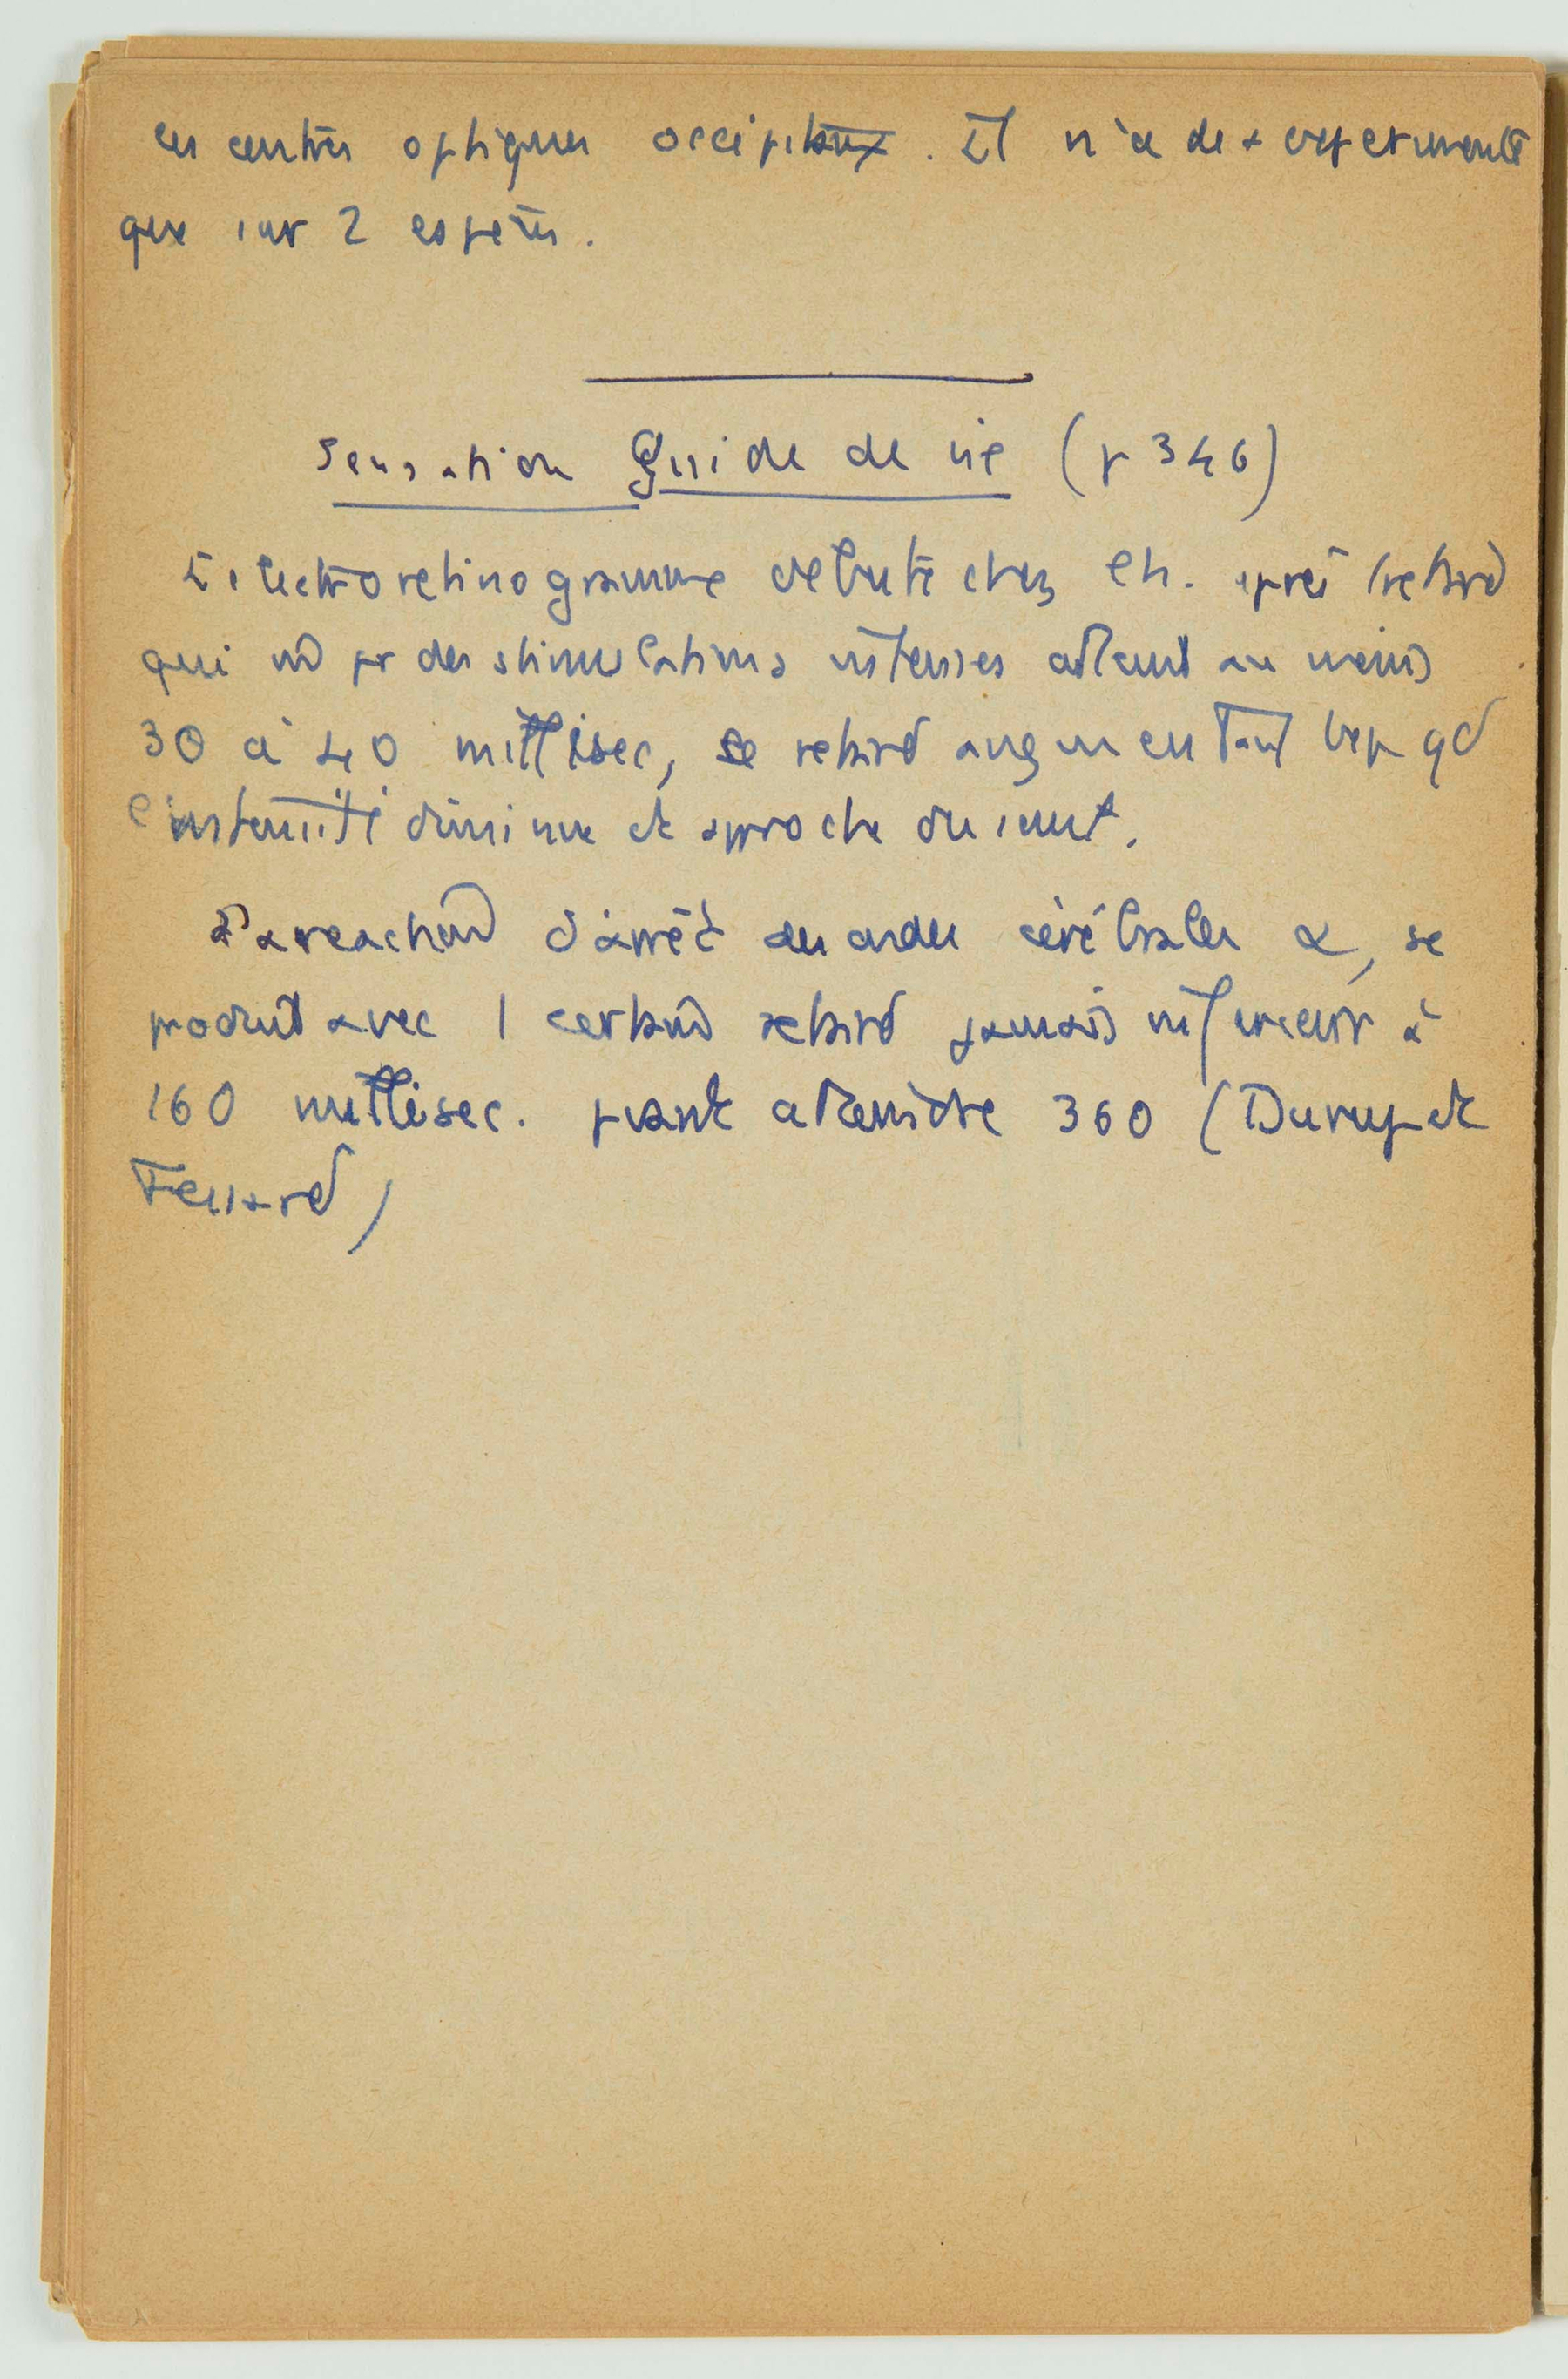 les centres optiques occipitaux. Il n'a de + experimenté
que sur 2 espèces.
Sensation Guide de vie (p 346)
L'électroretinogramme débute chez ch. après 1 retard
qui pr des stimulations intenses atteint au moins
30 à 40 millisec, ce retard augmentant bcp qd
l'intensité diminue et approche du seuil.
La reaction d'arrêt des ondes cérébrales α, se
produit avec 1 certain retard jamais inferieur à
160 millisec. pvant atteindre 360 (Durup et
Fessard)